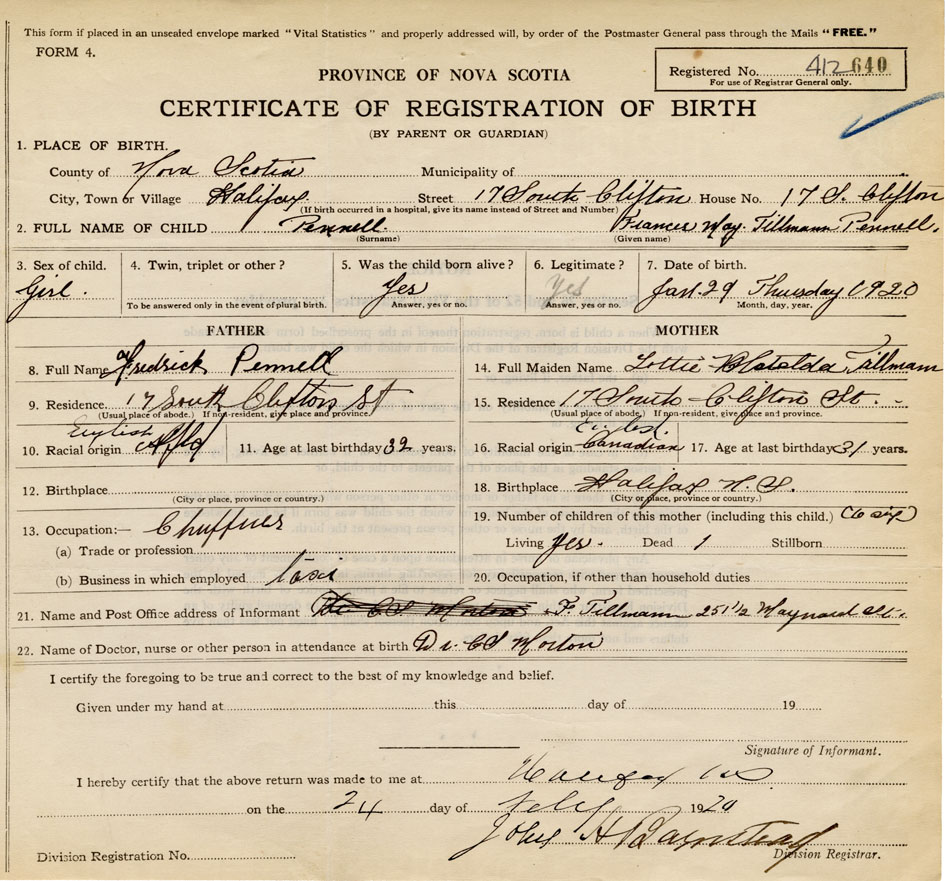 This form if placed in an unsealed envelope marked "Vital Statistics" and properly addressed will, by order of the Postmaster General pass through the Mails "FREE."
FORM 4.
PROVINCE OF NOVA SCOTIA
Registered No. 412 640
For use of Registrar General only.
CERTIFICATE OF REGISTRATION OF BIRTH
(BY PARENT OR GUARDIAN)
1. PLACE OF BIRTH.
County of Nova Scotia Municipality of
City, Town or Village Halifax. Street 17 South Clifton House No. 17 S. Clifton
(If birth occurred in a hospital, give its name instead of Street and Number)
2. FULL NAME OF CHILD Pennell. Frances May. Tillmann Pennell.
(Surname) (Given name)
3. Sex of child. 4. Twin, triplet or other? 5. Was the child born alive? 6. Legitimate? 7. Date of birth.
Girl. Yes Yes Jan 29 Thursday 1920
To be answered only in the event of plural birth. Answer, yes or no. Answer, yes or no. Month, day, year.
FATHER MOTHER
8. Full Name Fredrick Pennell 14. Full Maiden Name Lottie Tillmann
9. Residence 17 South Clifton St 15. Residence 17 South Clifton St.
(Usual place of abode.) If non-resident, give place and province. (Usual place of abode,) If non-resident, give place and province.
English
10. Racial origin 11. Age at last birthday 32 years. 16. Racial origin Canadian 17. Age at last birthday 31 years.
12. Birthplace 18. Birthplace Halifax N.S.
(City or place, province or country.) (City or place, province or country.)
13. Occupation:— Chuffner 19. Number of children of this mother (including this child.) six
(a) Trade or profession Living Yes. Dead 1 Stillborn
(b) Business in which employed taxi 20. Occupation, if other than household duties
21. Name and Post Office address of Informant F. Tillmann 251 1/2 Maynard St.
22. Name of Doctor, nurse or other person in attendance at birth Dr. CS Morton
I certify the foregoing to be true and correct to the best of my knowledge and belief.
Given under my hand at this day of 19
Signature of Informant.
I hereby certify that the above return was made to me at Halifax NS
on the 24 day of Feby 1920
John H Barnstead
Division Registration No. Division Registrar.